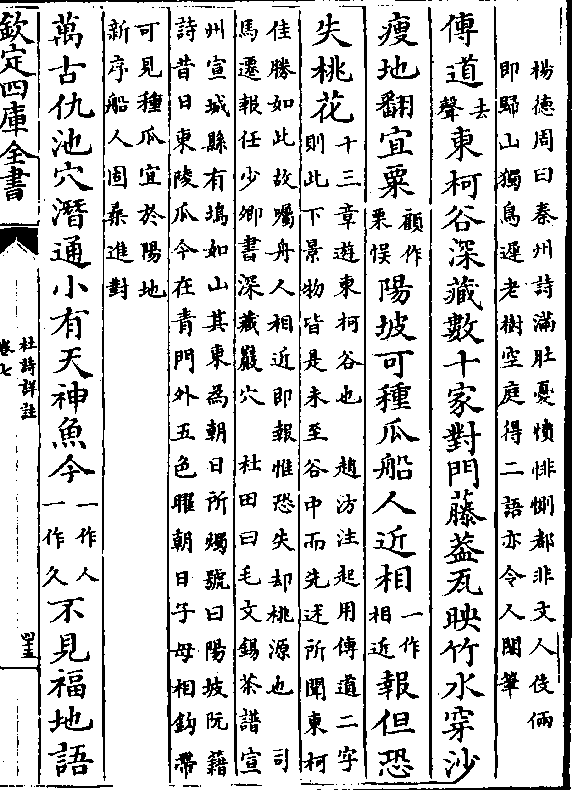 楊德周曰秦州詩滿肚憂憤悱惻都非文人伎倆
即歸山獨鳥遲老樹空庭得二語亦令人閣筆
傳道去聲東柯谷深藏數十家對門藤蓋瓦映竹水穿沙
瘦地翻宜粟顧作栗悮陽坡可種瓜船人近相一作相近報但恐
失桃花十三章遊東柯谷也 趙汸注起用傳道二字
則此下景物皆是未至谷中而先述所聞東柯
佳勝如此故囑舟人相近即報惟恐失却桃源也 司
馬遷報任少卿書深藏巖穴 杜田曰毛文錫茶譜宣
州宣城縣有塢如山其東為朝日所燭號曰陽坡阮籍
詩昔日東陵瓜今在青門外五色曜朝日子母相鉤帶
可見種瓜宜於陽地
新序船人固桑進對
萬古仇池穴潛通小有天神魚今一作人一作久不見福地語
欽定四庫全書
杜詩詳註
卷七